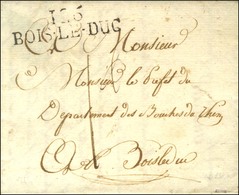 126
BOIS-LE-DUC
Monsieur
Monsieur le Prefet du
Departement des Bouches du Rhin
A Boisleduc